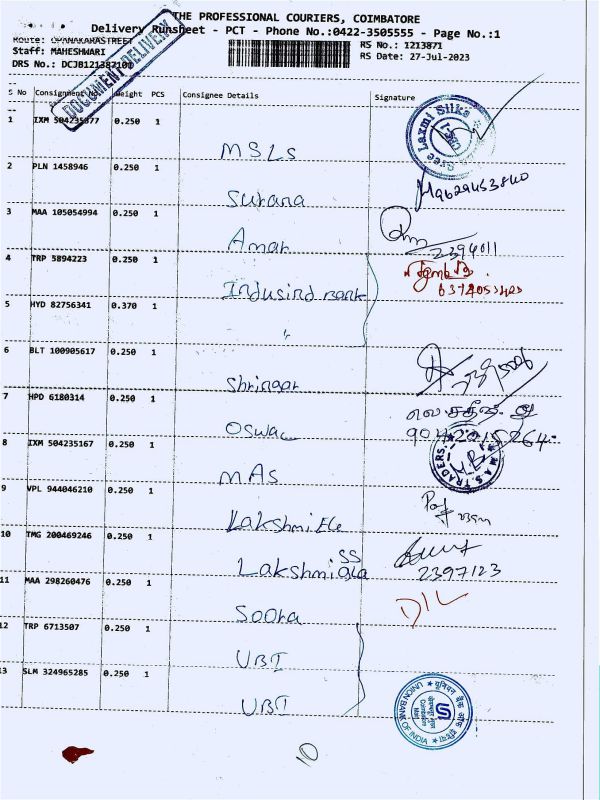 THE PROFESSIONAL COURIERS, COIMBATORE
Delivery Runsheet - PCT - Phone No.:0422-3505555 - Page No.:1
Route: OPANAKARASTREET
RS No.: 1213871
Staff: MAHESHWARI
RS Date: 27-Jul-2023
DRS No.: DCJB1213871
DOCUMENT DELIVERY
S No Consignment No Weight PCS Consignee Details Signature
1 IXM 504235077 0.250 1 MSLS Sree Laxmi Silks
2 PLN 1458946 0.250 1 Surana 9629453840
3 MAA 105054994 0.250 1 Amar 2394011
4 TRP 5894223 0.250 1 Indusind Bank
5 HYD 82756341 0.370 1 "
6 BLT 100905617 0.250 1 Shringar
7 HPD 6180314 0.250 1 Oswal
8 IXM 504235167 0.250 1 MAS M.A.S. TRADERS
9 VPL 944046210 0.250 1 Lakshmi Ele
10 TMG 200469246 0.250 1 Lakshmi SS 2397123
11 MAA 298260476 0.250 1 Sobha D/L
12 TRP 6713507 0.250 1 UBI
13 SLM 324965285 0.250 1 UBI UNION BANK OF INDIA
10